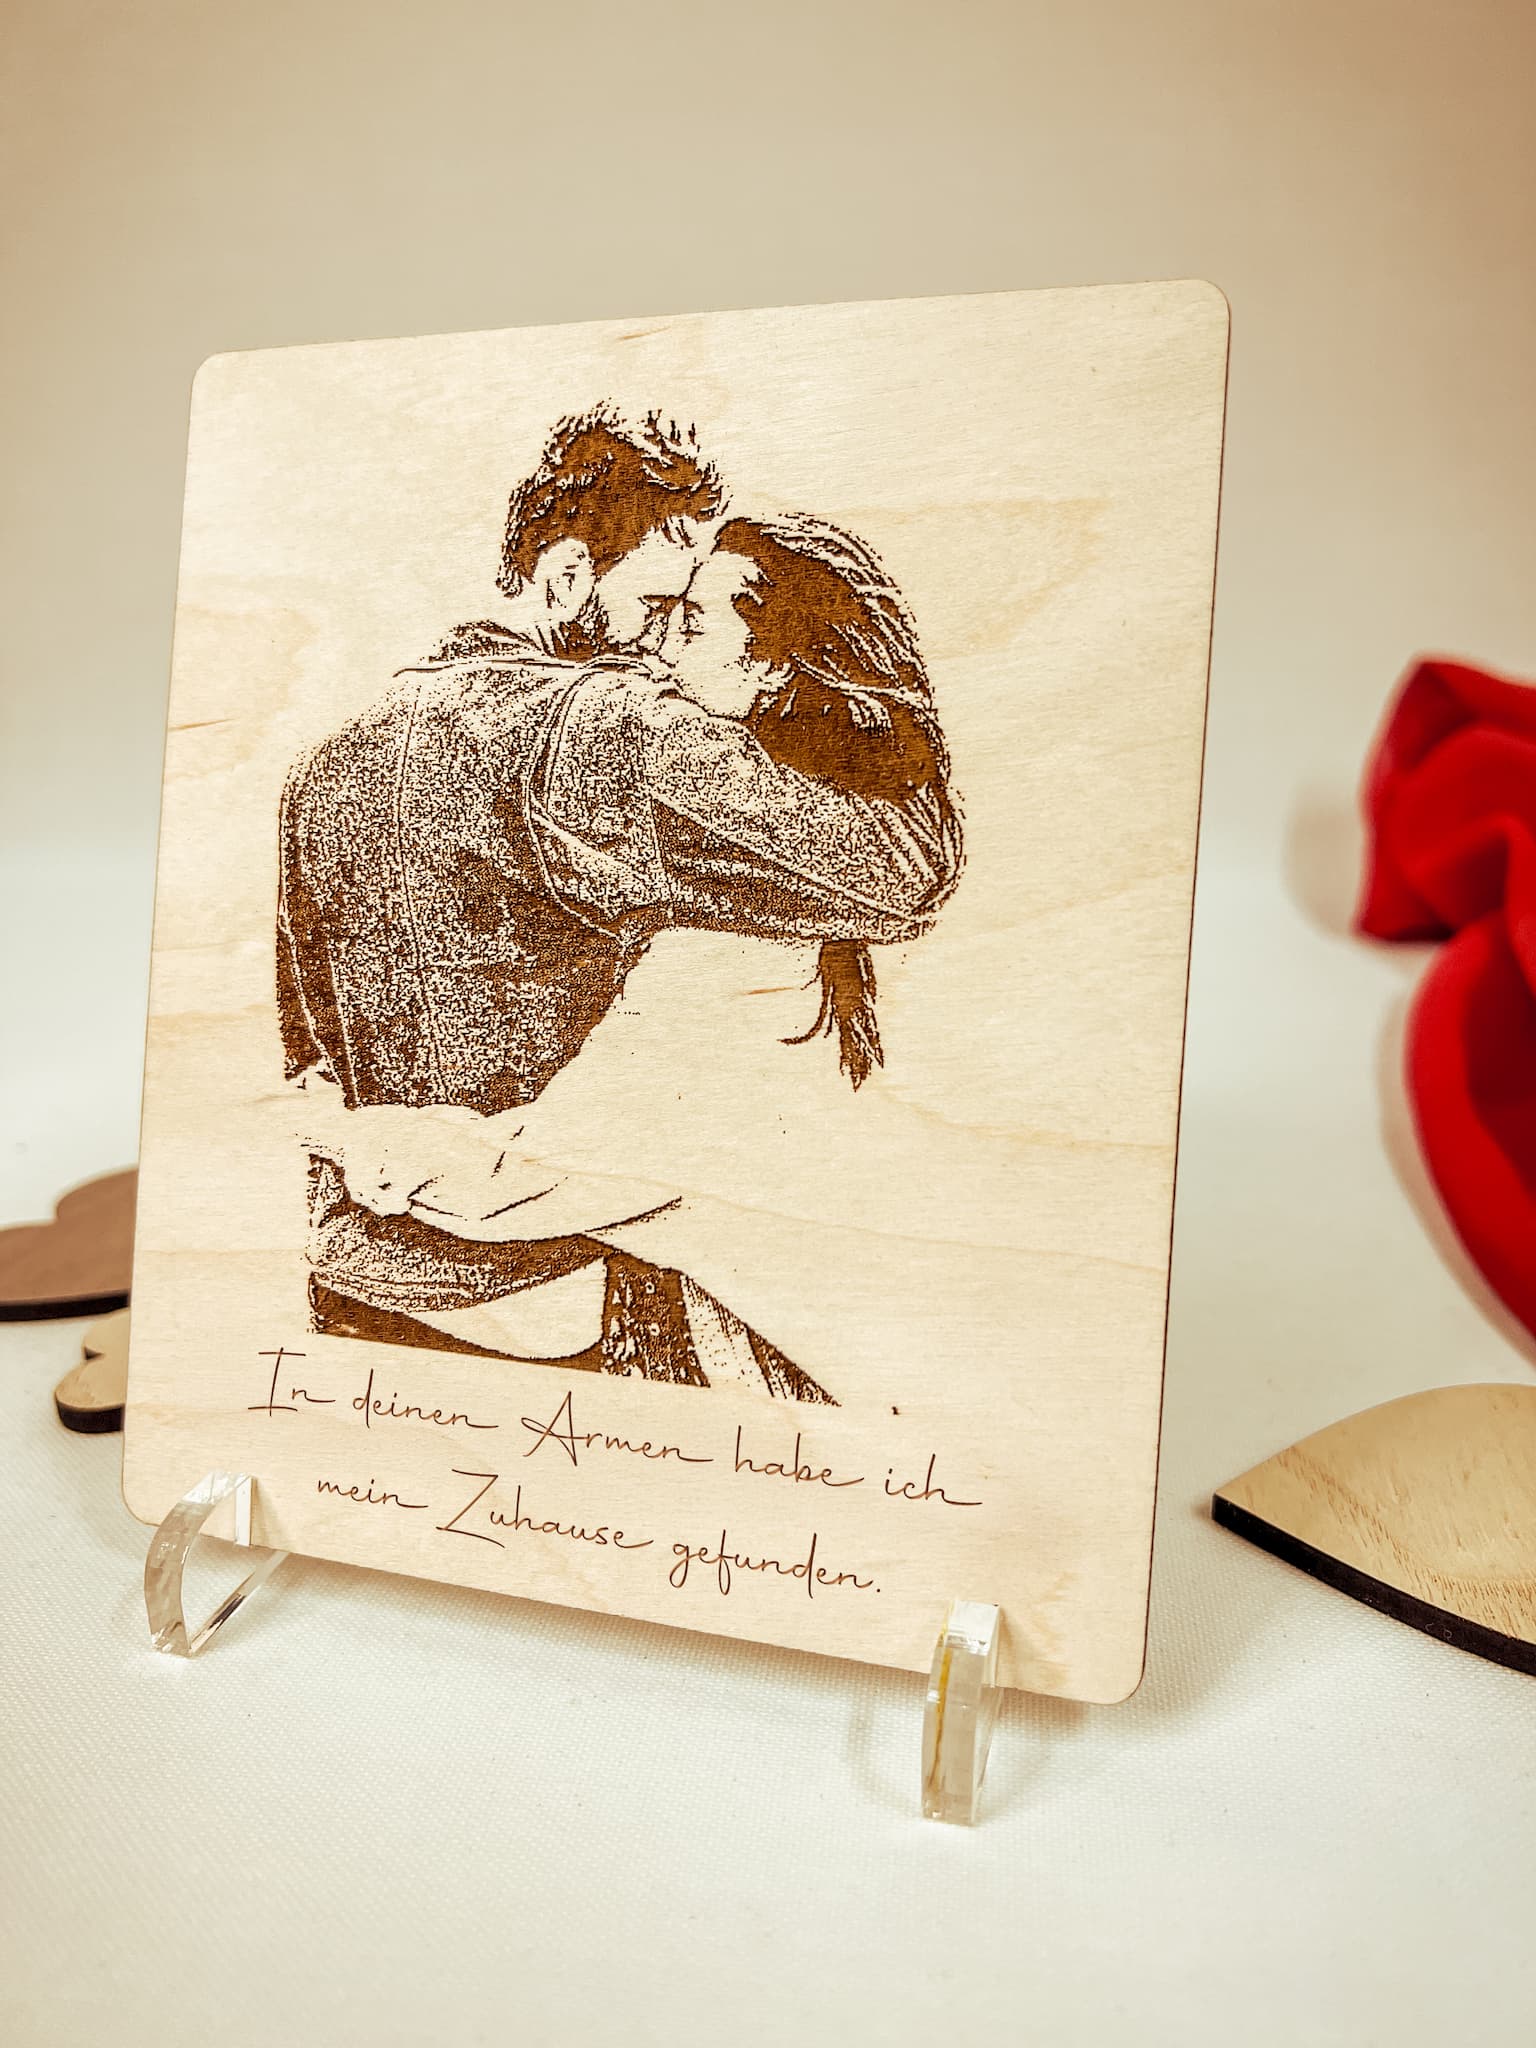 In deinen Armen habe ich
mein Zuhause gefunden.